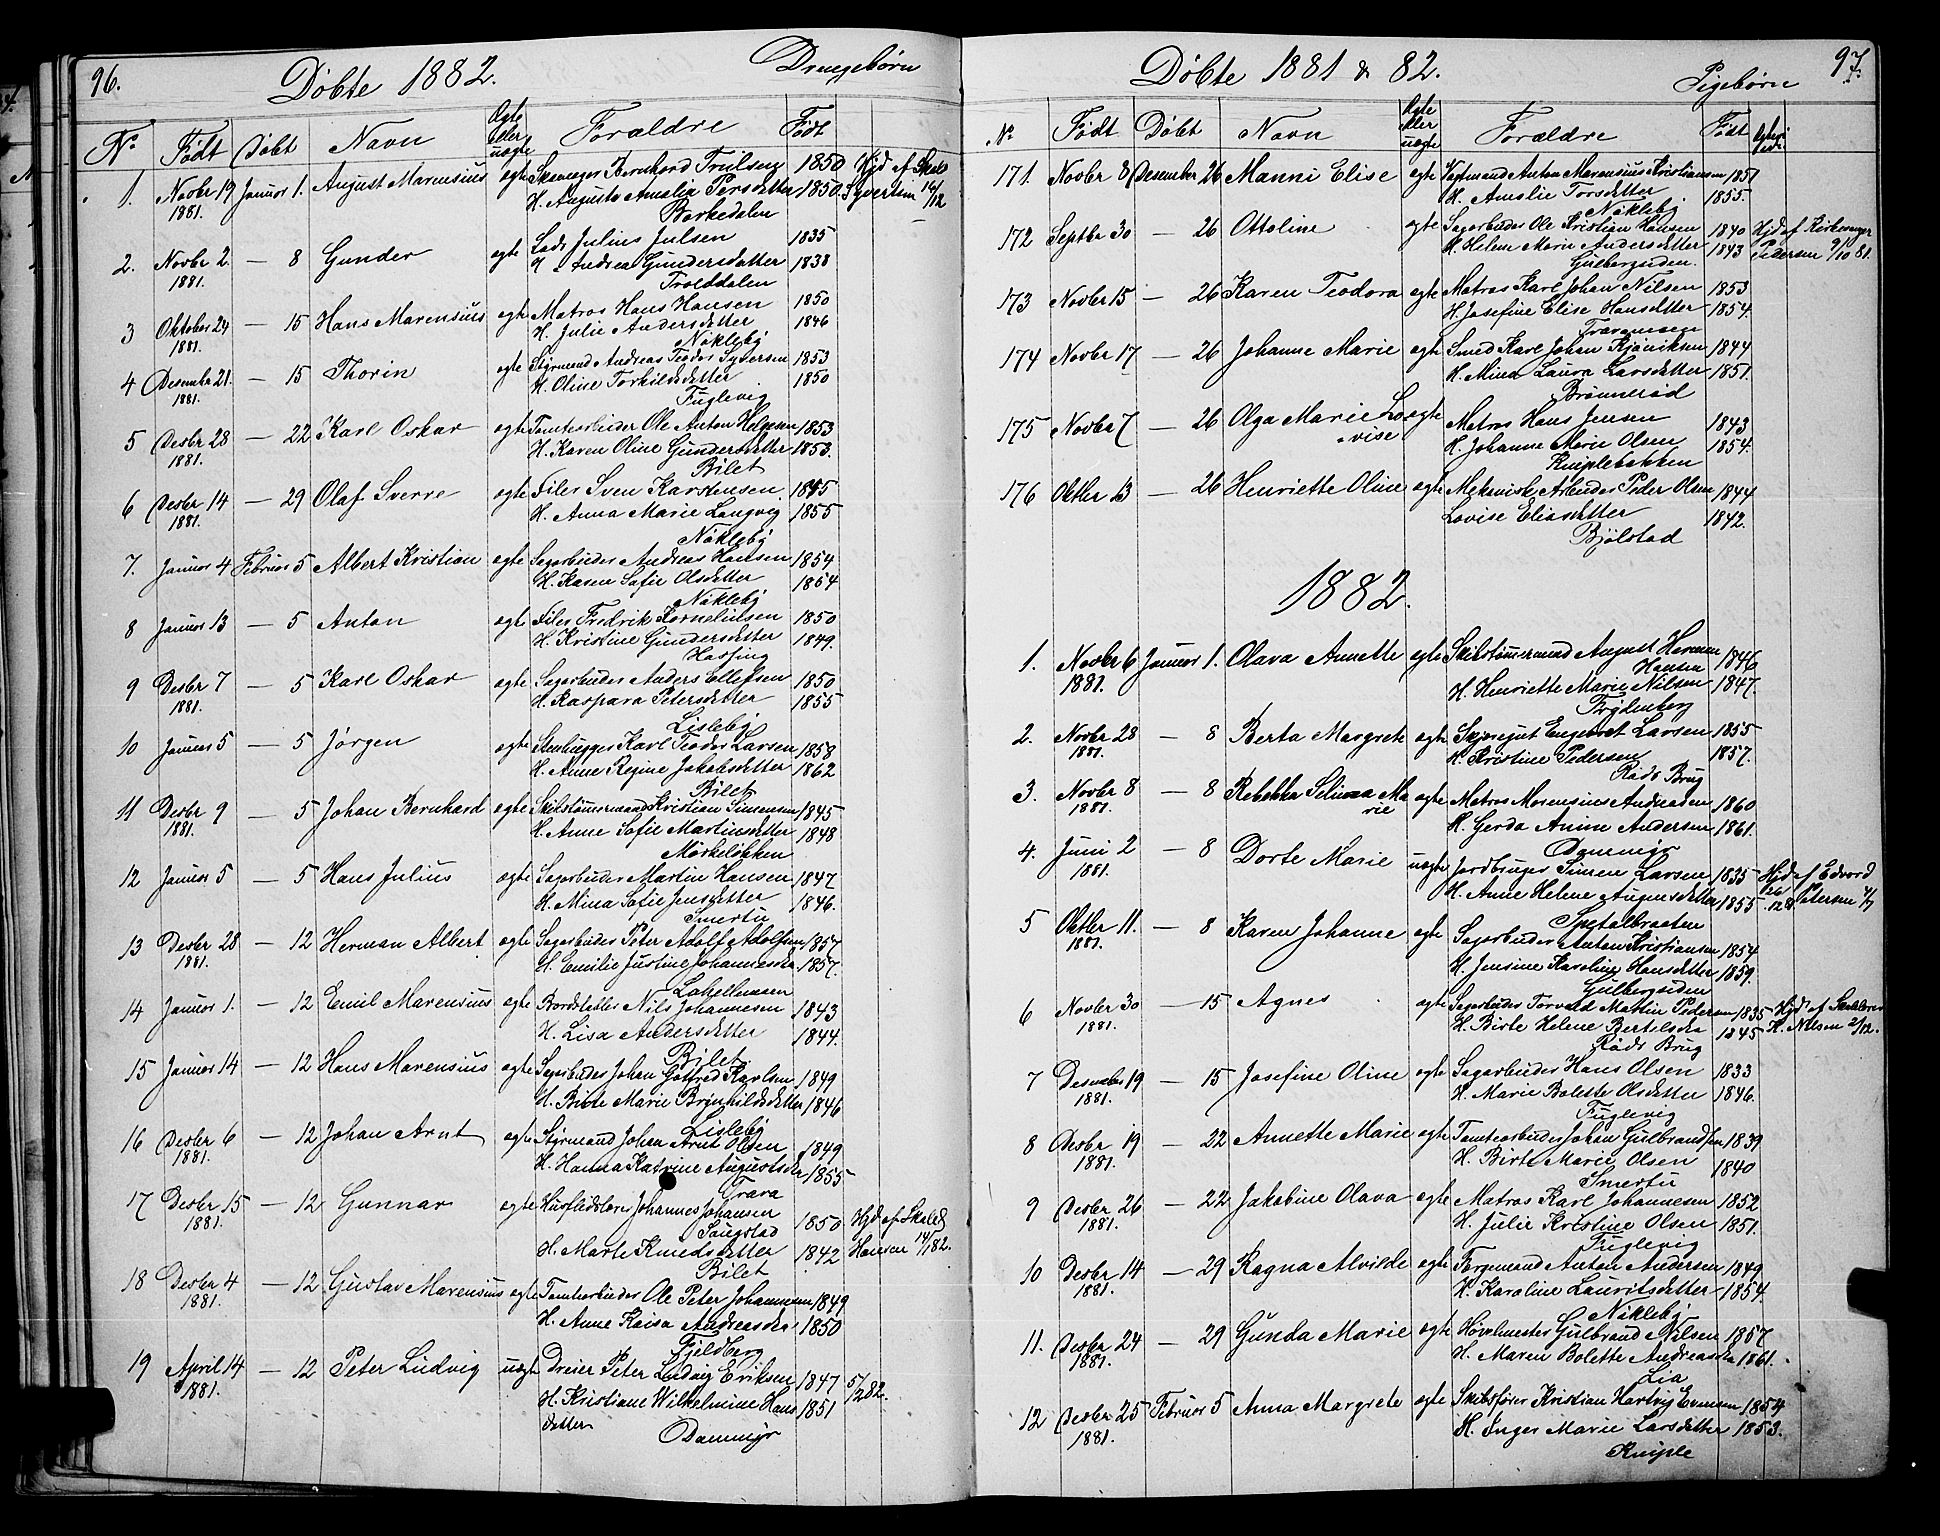 96.
Döbte 1882.
Drengebørn
No Født Døbt Navn Ægte eller uægte Forældre Født
1. Novbr 19 1881. Januar 1. August Marensius ægte Bernhard Trulsen 1850 Hjd af
H. Augusta Amalia Persdatter 1850. Syversen 16/12
Borkedalen
2. Novbr 2. 1881. — 8 Gunder ægte Lods Julius Julsen 1835
Andrea Gundersdatter 1838
Trolddalen
3 Oktober 24 1881. — 15 Hans Marensius ægte Matros Hans Hansen 1850
H. Julie Andersdatter 1846
Nöklebÿ
4 Desember 21. 1881. — 15 Thorin ægte Styrmand Andreas Teodor Syversen 1853
H. Oline Torkildsdatter 1850
Fuglevig
5 Desbr 28 1881. — 22 Karl Oskar ægte Tomtearbeider Ole Anton Helgesen 1853
H. Karen Oline Gundersdatter 1853.
Bilet
6 Desbr 14 1881. — 29 Olaf Sverre ægte Filer Sven Karstensen 1855
H. Anna Marie Langvig 1855
Nöklebÿ
7. Januar 4 Februar 5 Albert Kristian ægte Sagarbeider Andreas Hansen 1854
H. Karen Sofie Olsdatter 1854
Nöklebÿ
8 Januar 13 — 5 Anton ægte Filer Fredrik Korneliusen 1850
H. Kristine Gundersdatter 1849.
Hassing
9 Desbr 7 1881. — 5 Karl Oskar ægte Sagarbeider Anders Ellefsen 1850
H. Kaspara Petersdatter 1855
Lislebÿ
10 Januar 5 — 5 Jörgen ægte Stenhugger Karl Teodor Larsen 1858
H. Anne Regine Jakobsdatter 1862
Bilet
11 Desbr 9 1881. — 5 Johan Bernhard ægte Skibstømmermand Kristian Simensen 1845
H. Anne Sofie Martinsdatter 1848
Mörkelökken
12 Januar 5 — 5 Hans Julius ægte Sagarbeider Martin Hansen 1847
H. Mina Sofie Jensdatter 1846.
Smertu
13 Desbr 28 1881. — 12 Herman Albert ægte Sagarbeider Peter Adolf Adolfsen 1857
H. Emilie Justine Johannesda 1857.
14 Januar 1. — 12 Emil Marensius ægte Bordstabler Nils Johannesen 1843
H. Lisa Andersdatter 1844.
Bilet
15 Januar 14 — 12 Hans Marensius ægte Sagarbeider Johan Gotfred Karlsen 1849
H. Birte Marie Brynhildsdatter 1846
Lislebÿ
16 Desbr 6 1881. — 12 Johan Arnt ægte Styrmand Johan Arnt Olsen 1849
H. Hanna Katrine Augustsda 1855
Trara
17 Desbr 15 1881. — 12 Gunnar ægte Husflidslærer Johannes Johansen
Sangstad 1850 Hjd af
H. Marte Knudsdatter 1842 Hansen 14/1 82.
Bilet
18 Desbr 4 1881. — 12 Gustav Marensius ægte Tomtearbeider Ole Peter Johannesen 1849
H. Anne Kaisa Andreasda 1850
Fjeldberg
19 April 14 1881. — 12 Peter Ludvig uægte Dreier Peter Ludvig Eriksen 1847
H. Kristiane Wilhelmine Hans 1851
datter Dammyr
97.
Döbte 1881 & 82.
Pigebørn
No Født Döbt Navn Ægte eller uægte Forældre Født
171. Novbr 8 Desember 26 Manni Elise ægte Anton Marensius Kristiansen 1851
H. Amalie Torsdatter 1855.
Nöklebÿ
172 Septbr 30 — 26 Ottoline ægte Sagarbeider Ole Kristian Hansen 1840 Hjd af Kirkesanger
H. Helene Marie Andersdatter 1843 Pedersen 9/10 81.
Gulbergsiden.
173 Novbr 15 — 26 Karen Teodora ægte Matros Karl Johan Nilsen 1853
H. Josefine Elise Hansdatter 1854.
174 Novbr 17 — 26 Johanne Marie ægte Smed Karl Johan Kjöniksen 1844
H. Mina Laura Larsdatter 1851.
Brönneröd
175 Novbr 7 — 26 Olga Marie Lo vise ægte Matros Hans Jensen 1843
H. Johanne Marie Olsen 1854.
Kniplebakken
176 Oktbr 13 — 26 Henriette Oline ægte Mekanisk Arbeider Peder Olsen 1844
Lovise Eliasdatter 1842.
Bjölstad
1882.
1. Novbr 6 1881. Januar 1. Olava Annette ægte Skibstømmermand August Herman
Hansen 1846
H. Henriette Marie Nilsen 1847.
Frydenberg
2. Novbr 28 1881. — 8 Berta Margrete ægte Engebret Larsen 1855
H. Kristine Pedersen 1857.
Råds Brug
3. Novbr 8 1881. — 8 Rebekka Selma Ma rie ægte Matros Marensius Andreasen 1860
H. Gerda Amine Andersen 1861.
Dammyr
4. Juni 2 1881. — 8 Dorte Marie uægte Jordbruger Simen Larsen 1835 Hjd af Edvard
H. Anne Helene Augensdatter 1855 Petersen
Spetalbraaten
5 Oktbr 11. 1881. — 8 Karen Johanne ægte Sagarbeider Anton Kristiansen 1854
H. Jensine Karoline Hansdatter 1859.
Gulbergsiden
6 Novbr 30 1881. — 15 Agnes ægte Sagarbeider Torvald Martin Pedersen 1835 Hjd af
H. Birte Helene Bertelsda 1845 H. Nilsen 2/12.
Råds Brug
7 Desember 19 1881. — 15 Josefine Oline ægte Sagarbeider Hans Olsen 1833
H. Marie Bolette Olsdatter 1846.
Fuglevig
8 Desbr 19 1881. — 22 Annette Marie ægte Tomtearbeider Johan Gulbrandsen 1839
H. Birte Marie Olsen 1840
Smertu
9 Desbr 26 1881. — 22 Jakobine Olava ægte Matros Karl Johannesen 1852
H. Julie Kristine Olsen 1851.
Fuglevig
10 Desbr 14 1881. — 29 Ragna Alvilde ægte Færgemand Anton Andersen 1849
H. Karoline Lauritsdatter 1854.
Nöklebÿ
11. Desbr 24 1881. — 29 Gunda Marie ægte Hövelmester Gulbrand Nilsen 1857
H. Maren Bolette Andreasda 1861.
Lia
12 Desbr 25 1881. Februar 5 Anna Margrete ægte Skibsfører Kristian Hartvig Evensen 1854
H. Inger Marie Larsdatter 1853.
Kniple